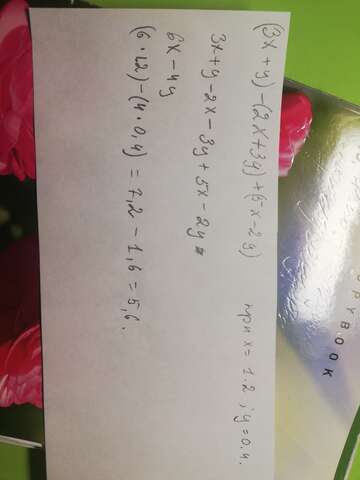 (3x + y) - (2x + 3y) + (5x - 2y)
при x = 1.2 ; y = 0.4.
3x + y - 2x - 3y + 5x - 2y =
6x - 4y
(6 · 1.2) - (4 · 0,4) = 7,2 - 1,6 = 5,6.
PYBOOK